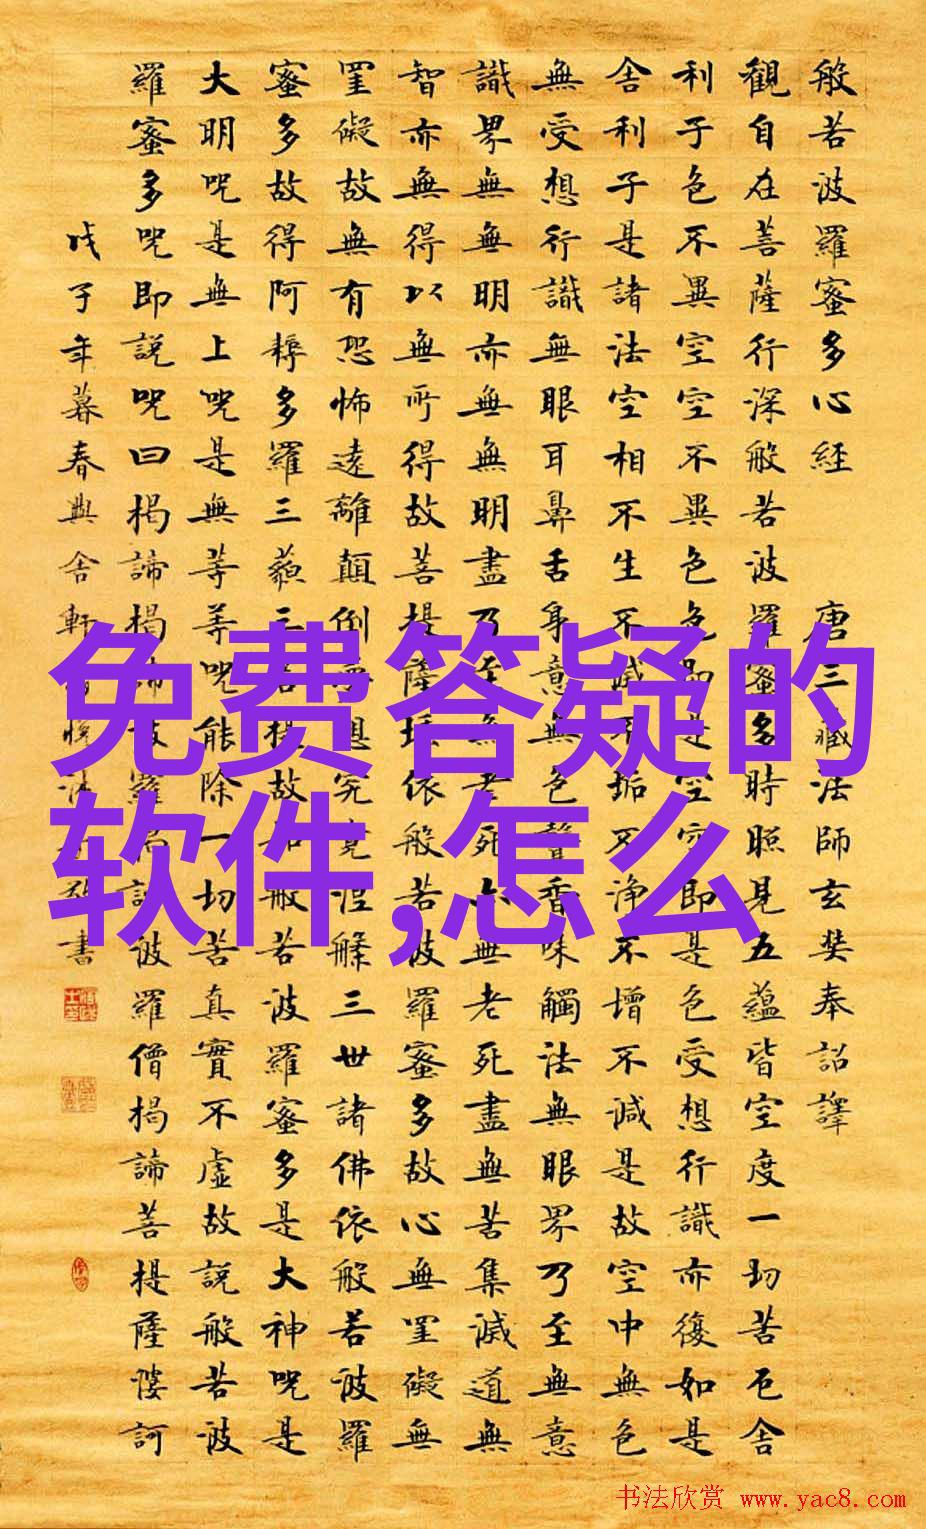 般若波羅蜜多心經 唐三藏法師玄奘奉詔譯
觀自在菩薩行深般若波羅蜜多時照見五蘊皆空度一切苦厄舍
利子色不異空空不異色色即是空空即是色受想行識亦復如是
舍利子是諸法空相不生不滅不垢不淨不增不減是故空中無色
無受想行識無眼耳鼻舌身意無色聲香味觸法無眼界乃至無意
識界無無明亦無無明盡乃至無老死亦無老死盡無苦集滅道無
智亦無得以無所得故菩提薩埵依般若波羅蜜多故心無罣礙無
罣礙故無有恐怖遠離顛倒夢想究竟涅槃三世諸佛依般若波羅
蜜多故得阿耨多羅三藐三菩提故知般若波羅蜜多是大神咒是
大明咒是無上咒是無等等咒能除一切苦真實不虛故說般若波
羅蜜多咒即說咒曰揭諦揭諦波羅揭諦波羅僧揭諦菩提薩婆訶
戊子年暮春典舍軒書
免费答疑的
软件,怎么
书法欣赏 www.yac8.com